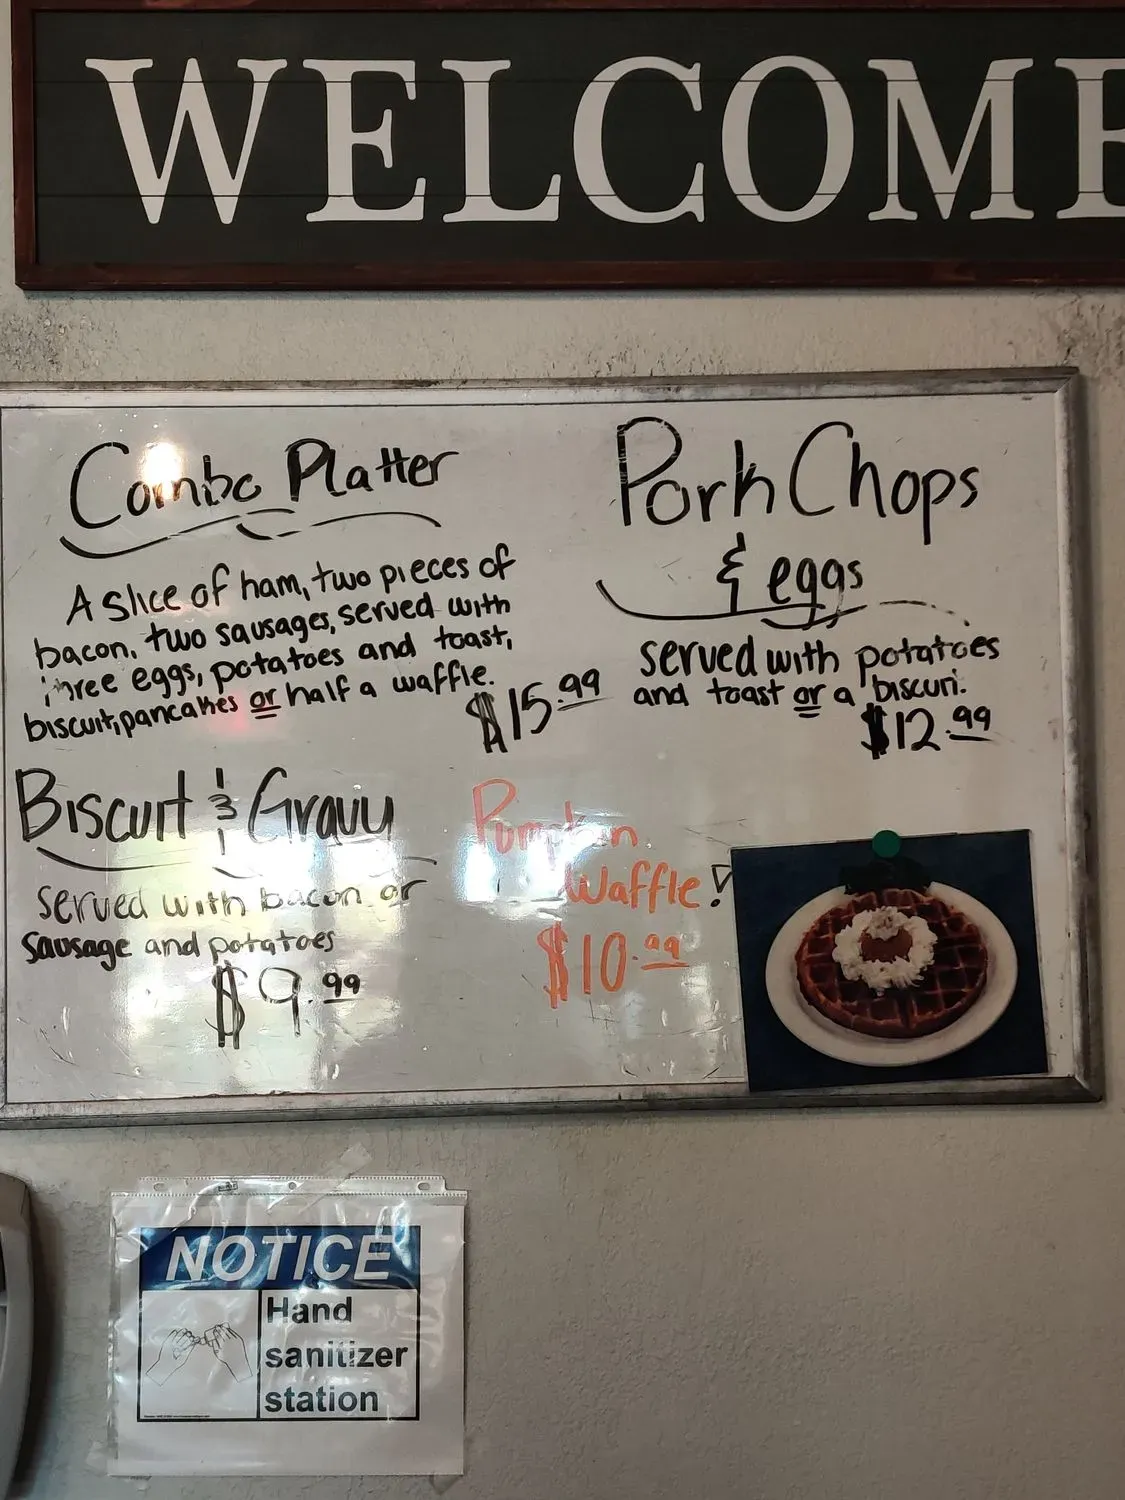 WELCOME
Combo Platter
A slice of ham, two pieces of
bacon, two sausages, served with
three eggs, potatoes and toast,
biscuit, pancakes or half a waffle.
$15.99
Pork Chops
& eggs
served with potatoes
and toast or a biscuit.
$12.99
Biscuit & Gravy
served with bacon or
sausage and potatoes
$9.99
Pumpkin
Waffle!
$10.99
NOTICE
Hand
sanitizer
station